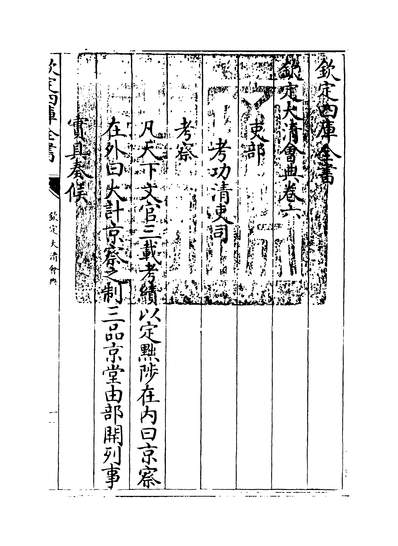 欽定四庫全書
欽定大清會典卷六
吏部
考功清吏司
考察
凡天下文官三載考績以定黜陟在内曰京察
在外曰大計京察之制三品京堂由部開列事
實具奏候
欽定四庫全書
欽定大清會典